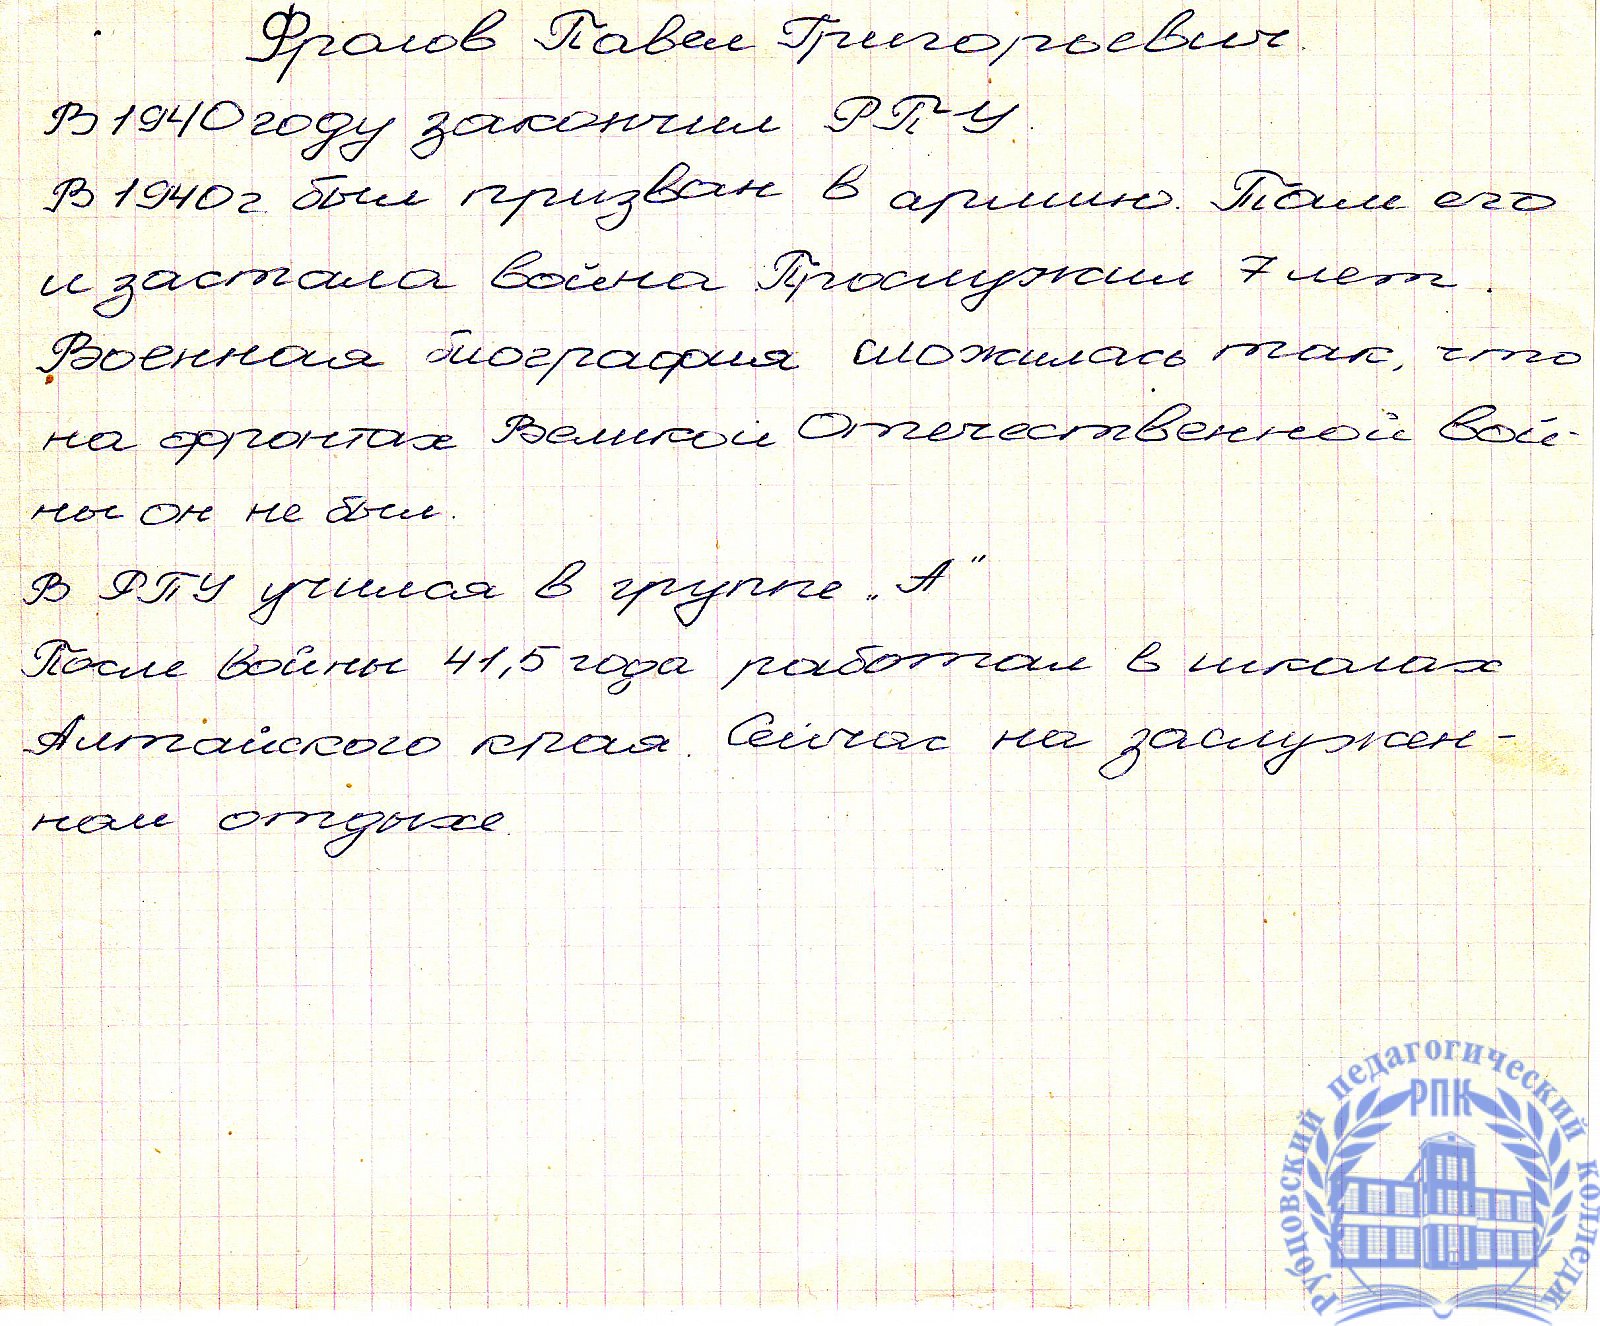 Фролов Павел Григорьевич.
В 1940 году закончил РПУ.
В 1940 г. был призван в армию. Там его
и застала война. Прослужил 7 лет.
Военная биография сложилась так, что
на фронтах Великой Отечественной вой-
ны он не был.
В РПУ учился в группе „А"
После войны 41,5 года работал в школах
Алтайского края. Сейчас на заслужен-
ном отдыхе.
Рубцовский педагогический колледж
РПК